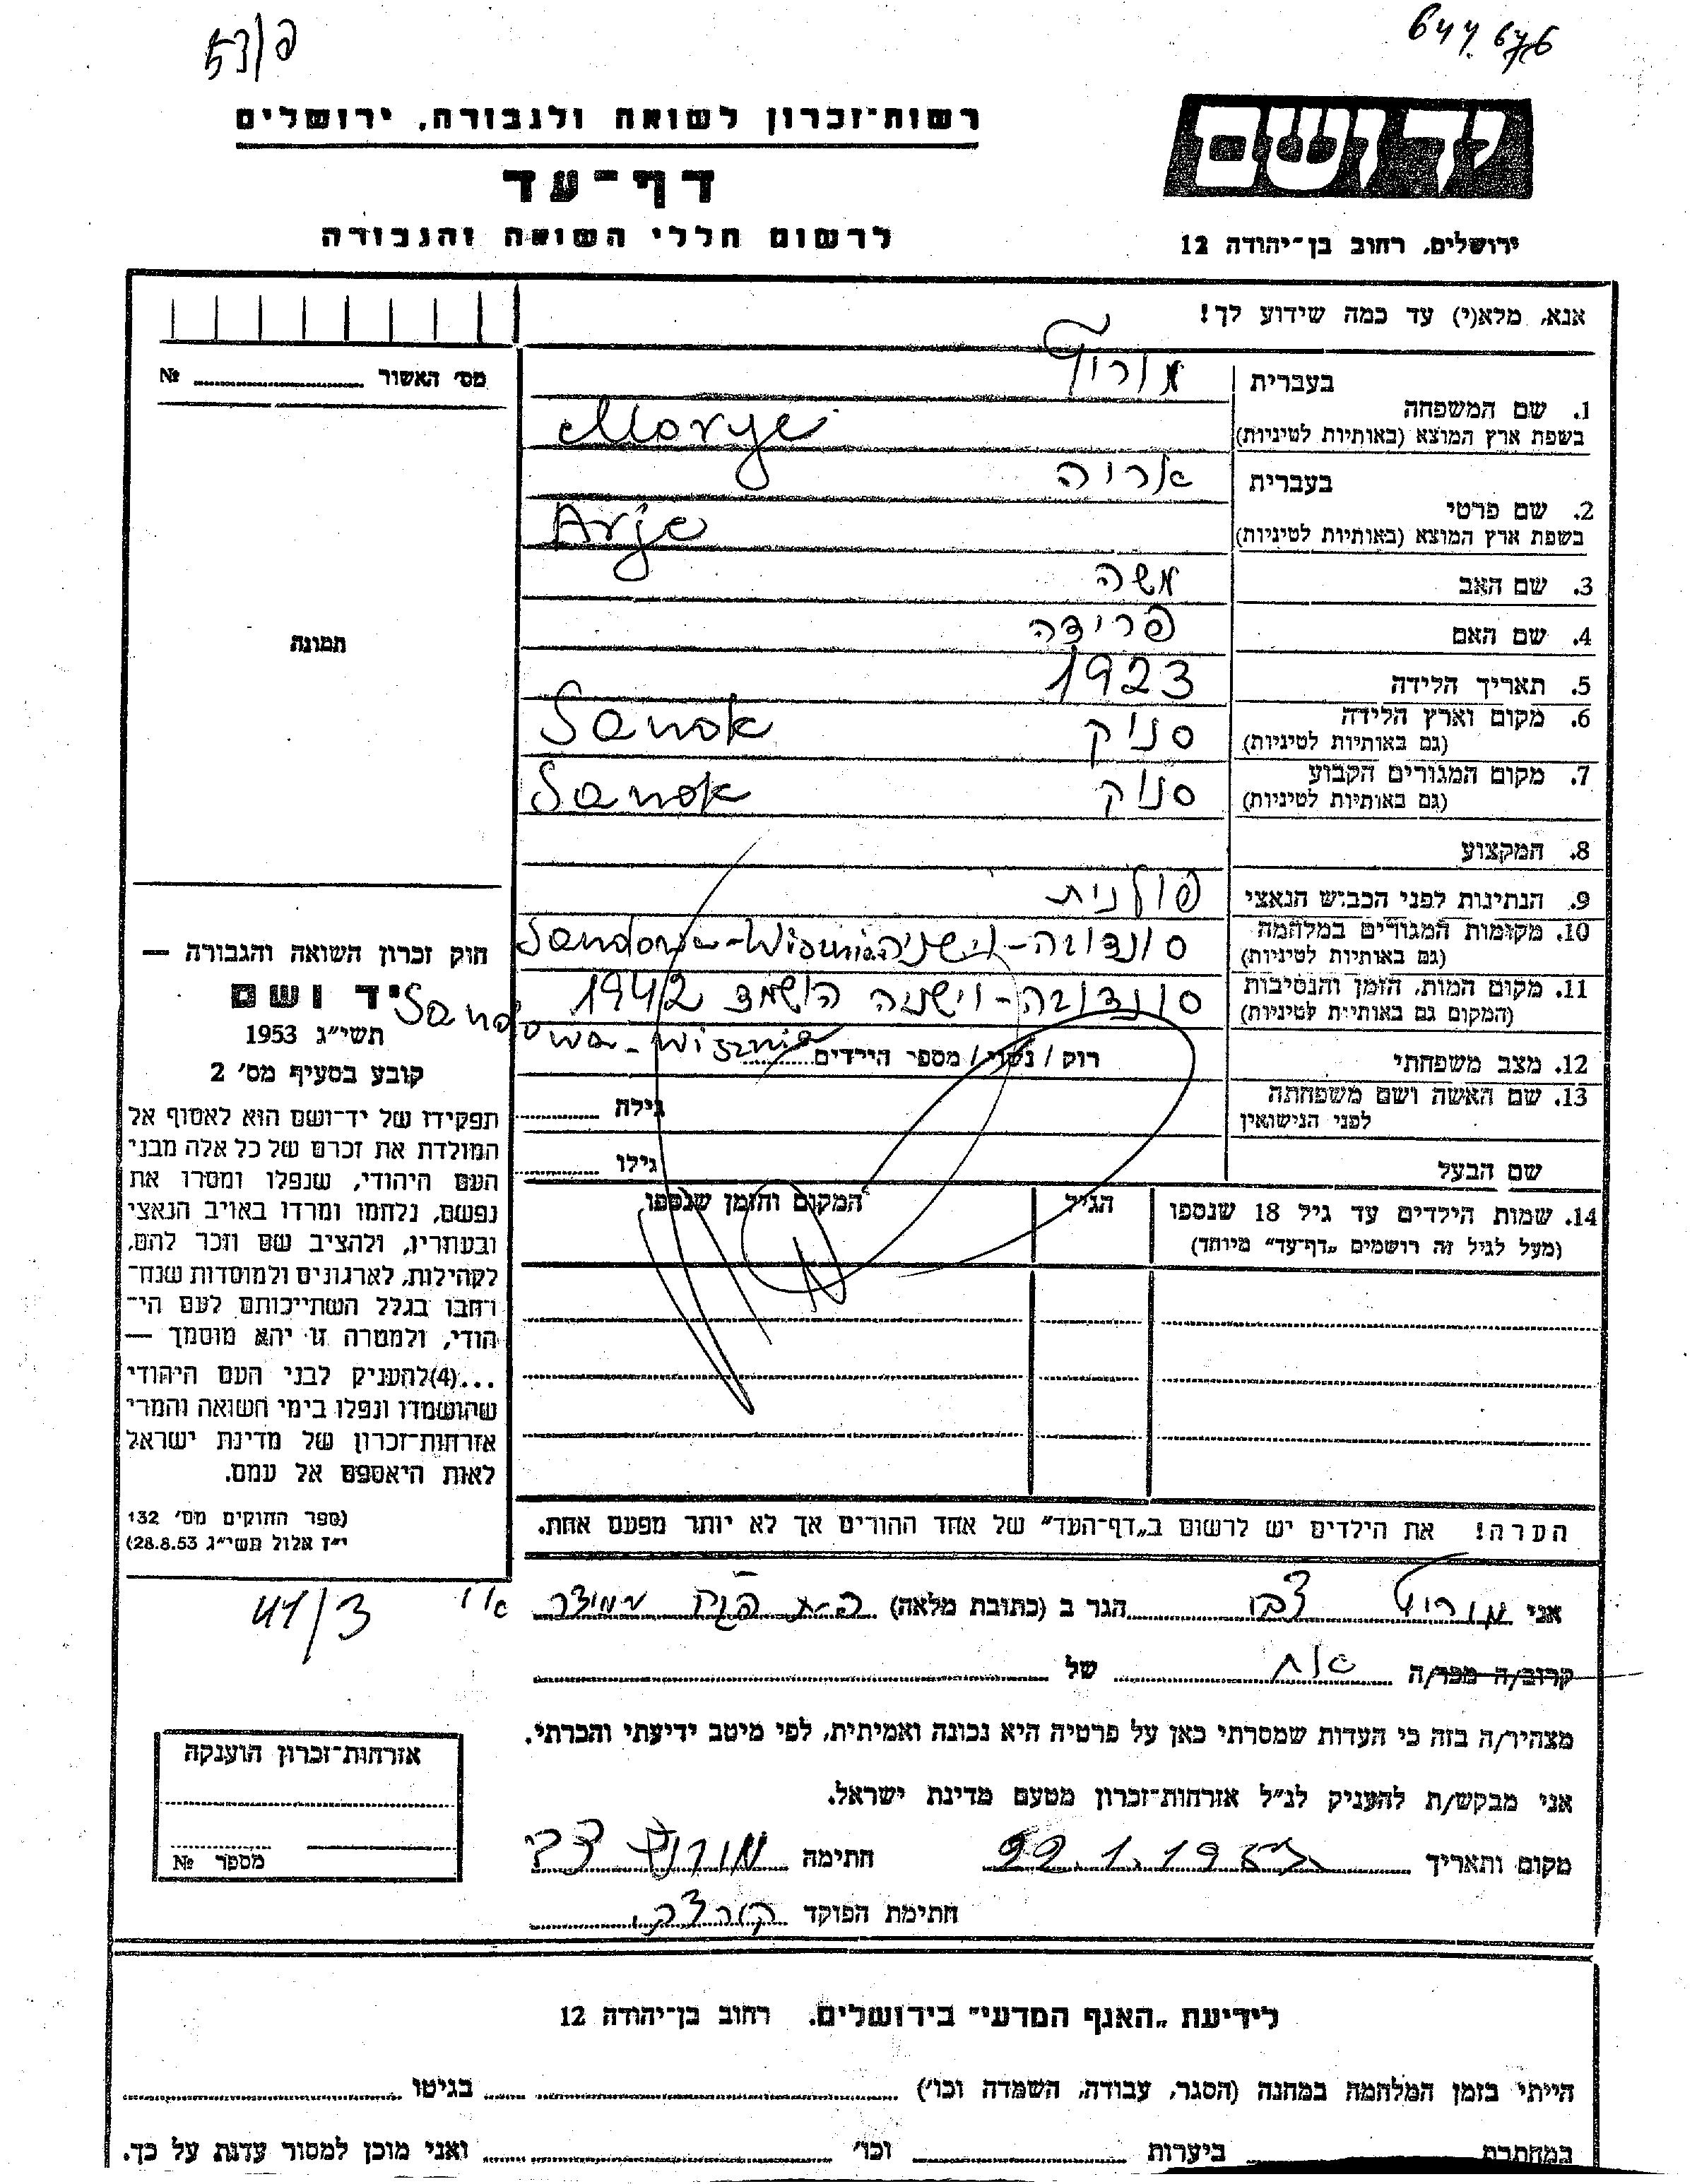 53/פ
644 676
ידושם
רשות־זכרון לשואה ולגבורה, ירושלים
דף־עד
לרשום חללי השואה והגבורה
ירושלים, רחוב בן־יהודה 12
אנא, מלא(י) עד כמה שידוע לך!
מס׳ האשור № 
תמונה
בעברית
1. שם המשפחה
בשפת ארץ המוצא (באותיות לטיניות) Morye
בעברית אריה
2. שם פרטי
בשפת ארץ המוצא (באותיות לטיניות) Arje
3. שם האב משה
4. שם האם פרידה
5. תאריך הלידה 1923
6. מקום וארץ הלידה סנוק Sanok
(גם באותיות לטיניות)
7. מקום המגורים הקבוע סנוק Sanok
(גם באותיות לטיניות)
8. המקצוע
9. הנתינות לפני הכבוש הנאצי פולנית
10. מקומות המגורים במלחמה סונדובה-וישניה Sandowa-Wisznia
(גם באותיות לטיניות)
11. מקום המות, הזמן והנסיבות סונדובה-וישניה הושמד 1942
(המקום גם באותיות לטיניות) Sandowa-Wisznia
12. מצב משפחתי רוק / נשוי / מספר הילדים
13. שם האשה ושם משפחתה גילה
לפני הנישואין
שם הבעל גילו
14. שמות הילדים עד גיל 18 שנספו הגיל המקום והזמן שנספו
(מעל לגיל זה רושמים „דף־עד״ מיוחד)
הערה! את הילדים יש לרשום ב„דף־העד״ של אחד ההורים אך לא יותר מפעם אחת.
חוק זכרון השואה והגבורה —
יד ושם
תשי״ג 1953
קובע בסעיף מס׳ 2
תפקידו של יד־ושם הוא לאסוף אל
המולדת את זכרם של כל אלה מבני
העם היהודי, שנפלו ומסרו את
נפשם, נלחמו ומרדו באויב הנאצי
ובעוזריו, ולהציב שם וזכר להם,
לקהילות, לארגונים ולמוסדות שנח־
רחבו בגלל השתייכותם לעם הי־
הודי, ולמטרה זו יהא מוסמך —
...(4)להעניק לבני העם היהודי
שהושמדו ונפלו בימי השואה והמרי
אזרחות־זכרון של מדינת ישראל
לאות היאספם אל עמם.
(ספר החוקים מס׳ 132
י״ז אלול תשי״ג 28.8.53)
41/3
אני צבי הגר ב (כתובת מלאה)
קרוב/ה מכר/ה אח של
מצהיר/ה בזה כי העדות שמסרתי כאן על פרטיה היא נכונה ואמיתית, לפי מיטב ידיעתי והכרתי.
אני מבקש/ת להעניק לנ״ל אזרחות־זכרון מטעם מדינת ישראל.
מקום ותאריך חתימה צבי
חתימת הפוקד
אזרחות־זכרון הוענקה
מספר №
לידיעת „האגף המדעי״ בירושלים. רחוב בן־יהודה 12
הייתי בזמן המלחמה במחנה (הסגר, עבודה, השמדה וכו׳) בגיטו
במחתרת ביערות וכו׳ ואני מוכן למסור עדות על כך.